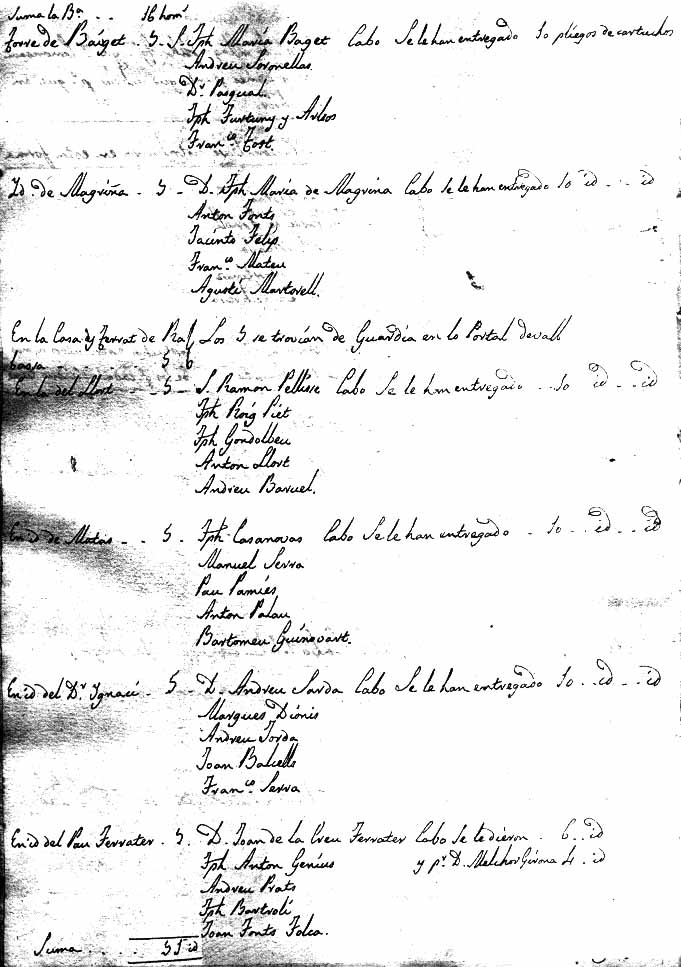 Suma la Bª . . 16 hom.ˢ
Torre de Baiget . 5 . S. Jph Maria Baget Cabo Se le han entregado 10 pliegos de cartuchos
Andreu Soronellas.
D.ʳ Pasqual.
Jph Furtuny y Arbos
Fran.ᶜᵒ Tost.
Id. de Magriña . 5 . D. Jph Maria de Magrina Cabo se le han entregado 10 id . . . id
Anton Fonts
Jacinto Felip
Fran.ᶜᵒ Mateu
Agustí Martorell.
En la Casa de Ferrat de Raf Los 5 se trovían de Guardia en lo Portal devall
bassa . . . . . . . 5 6
En la del Llort . . 5 . S. Ramon Pellisse Cabo Se le han entregado . . 10 id . . id
Jph Roig Piet
Jph Gondolbeu
Anton Llort
Andreu Baruel.
En id de Matas . . 5 . Jph Casanovas Cabo Se le han entregado . 10 . id . . id
Manuel Serra
Pau Pamies
Anton Palau
Bartomeu Guinovart.
En id del D.ʳ Ignaci . 5 . D. Andreu Sarda Cabo Se le han entregado 10 . . id . . id
Margues Dionis
Andreu Jorda
Joan Balcells
Fran.ᶜᵒ Serra
En id del Pau Ferrater . 5 . D. Joan de la Creu Ferrater Cabo se le dieron . 6 . . id
Jph Anton Genius y p.ʳ D. Melchor Girona 4 . id
Andreu Prats
Jph Bartroli
Joan Fonts Folca.
Suma . . . . 51 id